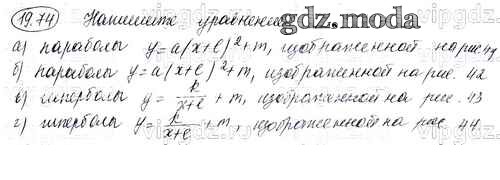 19.74 Напишите уравнение
gdz.moda
а) параболы y = a(x+l)²+m, изображенной на рис. 41
б) параболы y = a(x+l)²+m, изображенной на рис. 42
в) гиперболы y = k/(x+l) + m, изображенной на рис. 43
г) гиперболы y = k/(x+l) + m, изображенной на рис. 44.